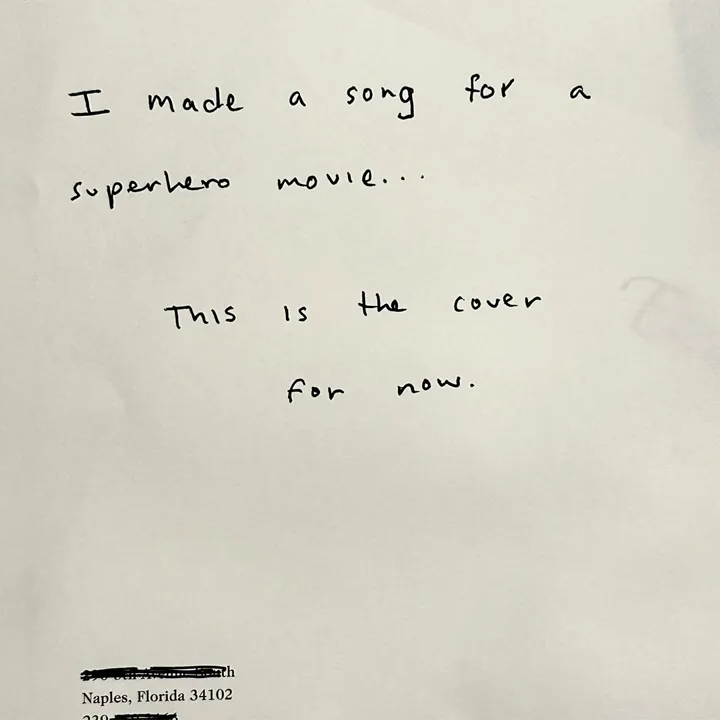 I made a song for a
superhero movie...
This is the cover
for now.
Naples, Florida 34102
239